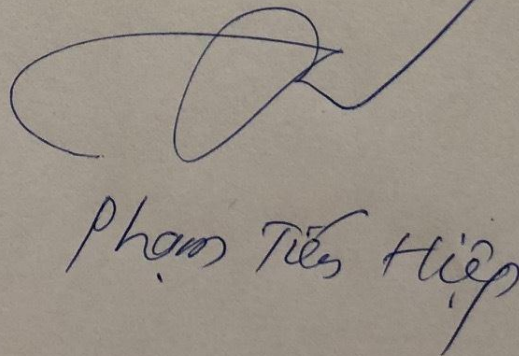 Phạm Tiến Hiệp